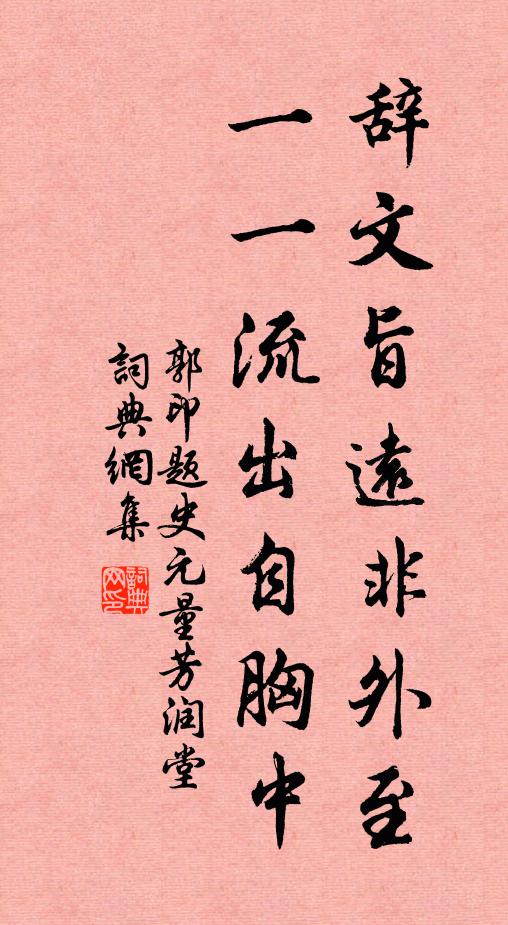 辞文旨遠非外至
一一流出自胸中
郭印题史元量芳润堂
詞典網集
詞典网印